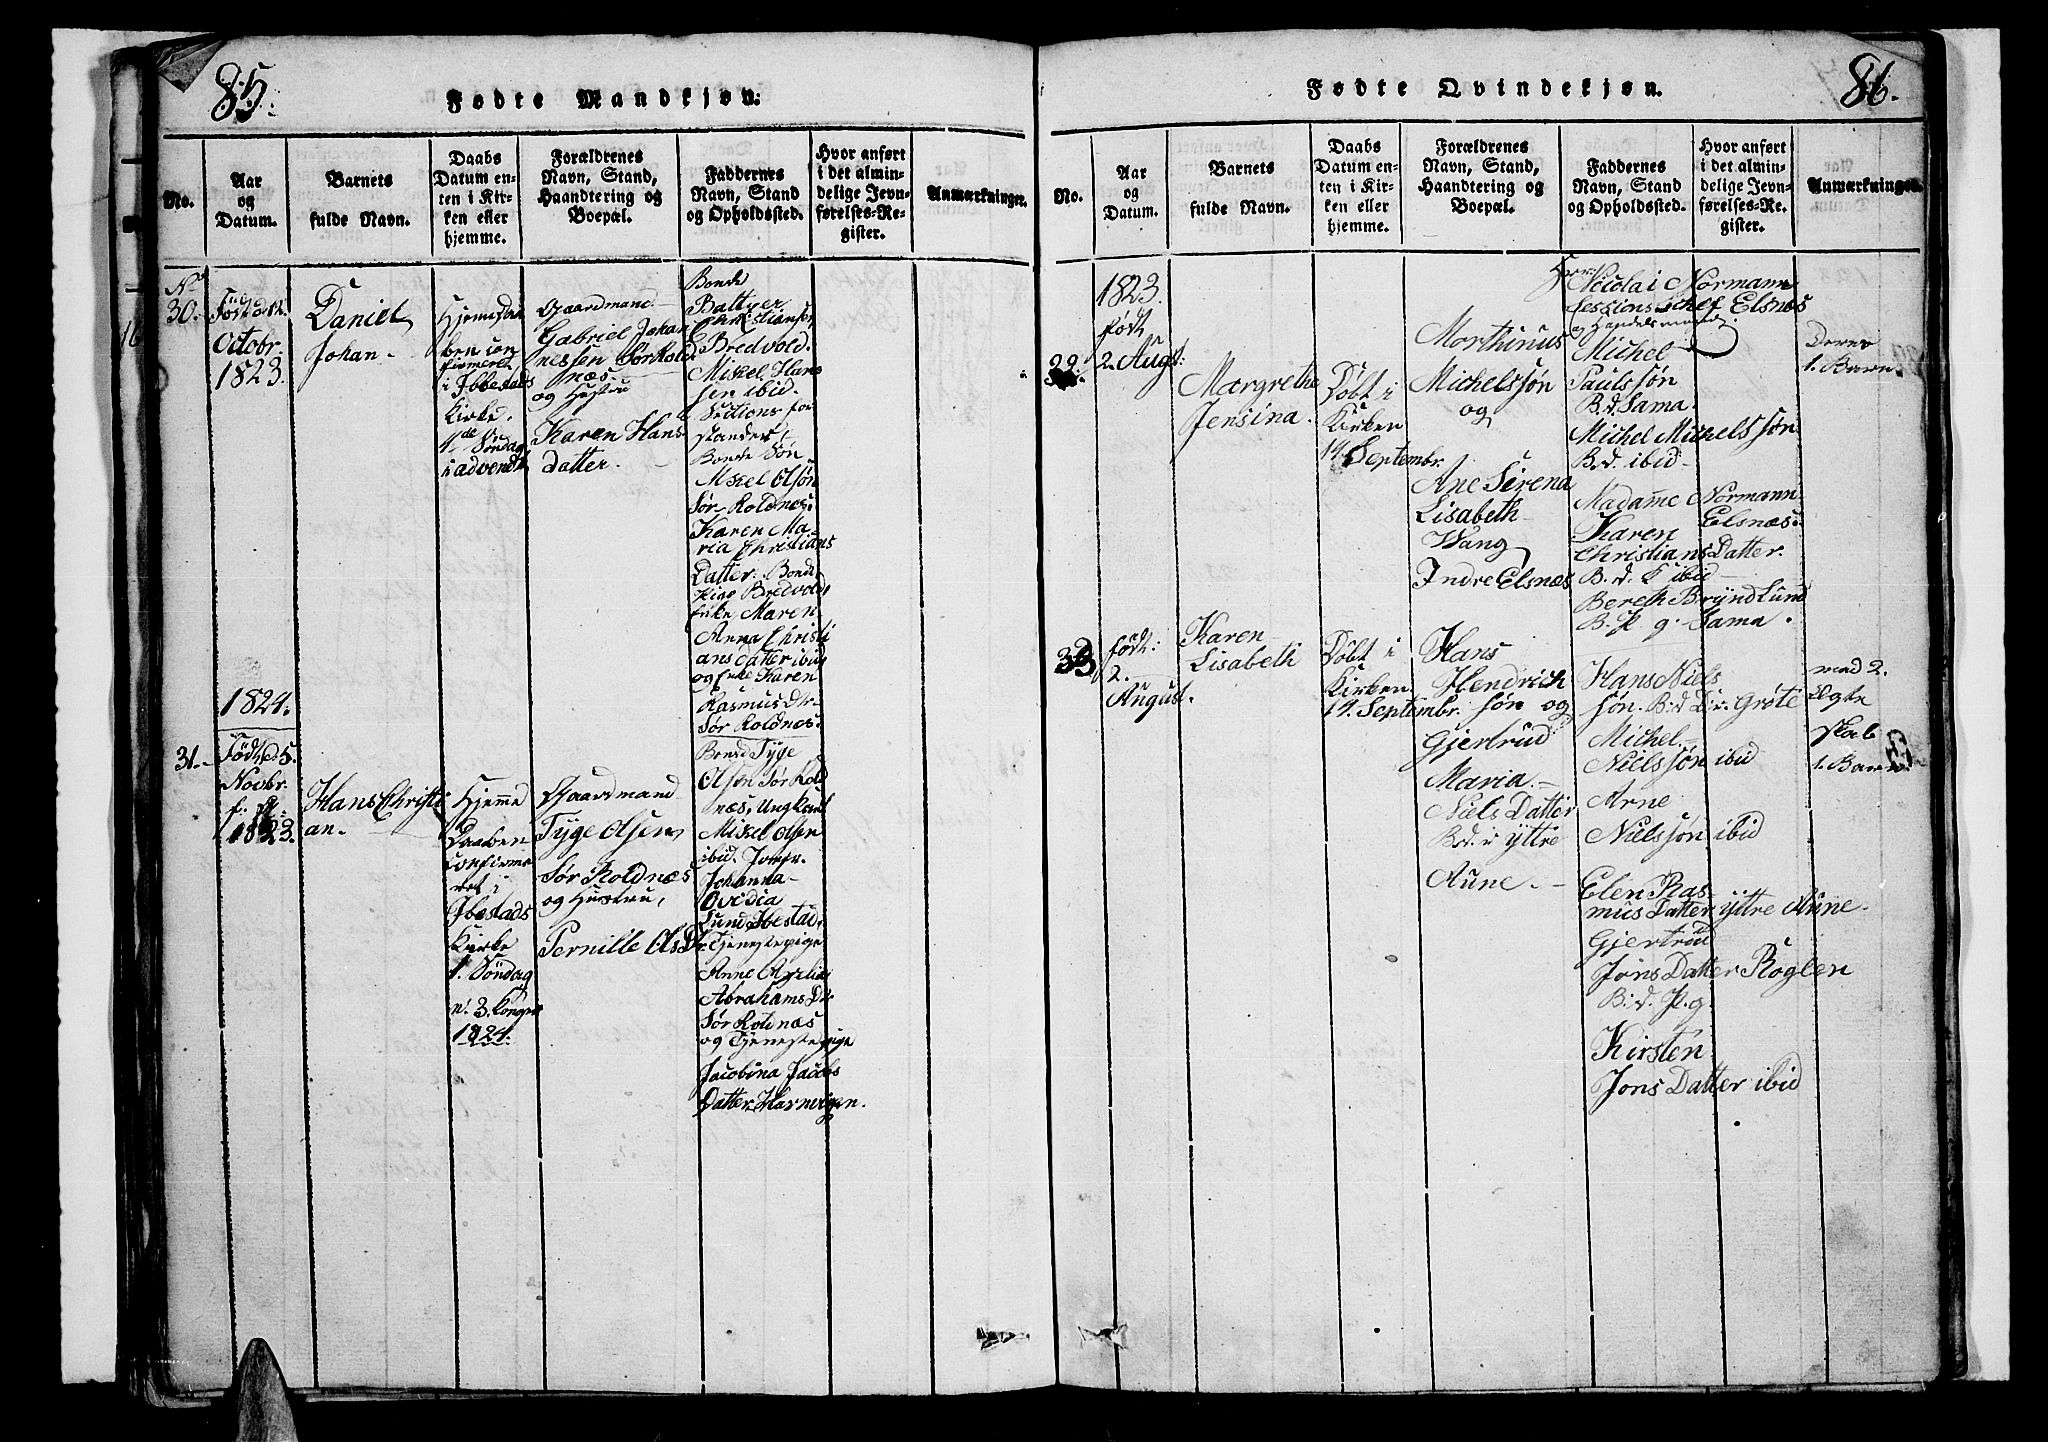 85.
Fødte Mandkjøn.
No.
Aar
og
Datum.
Barnets
fulde Navn.
Daabs
Datum en-
ten i Kir-
ken eller
hjemme.
Forældrenes
Navn, Stand,
Haandtering og
Boepæl.
Faddernes
Navn, Stand
og Opholdssted.
Hvor anført
i det almin-
delige Jevn-
førelses-Re-
gister.
Anmærkninger.
No
30.
Octobr.
1823.
Daniel
Johan
i Ibbestads
Kirke.
Søndag
i advendt
Gaardmand
Gabriel Johan
nessen
næs
og Hustru
Karen Hans
datter.
Bonde
Christiansen
Bredvold.
Mikel Han
sen ibid.
Sections for
stander
Bonde Søn
Mikel Olsøn
Sør Roldnæs.
Karen Ma-
ria Christians
Datter. Bonde
Pige Bredvold
Enke Maren
Anna Christi
ans datter ibid
og Enke Karen
Rasmus Dr
Sør Roldnæs.
1824.
31.
Født d 5.
Novbr.
1823.
Hans Christi
an.
Hjemme
Daaben
confirme
ret i
Ibestads
Kirke
1. Søndag
1824.
Gaardmand
Tyge Olsen
Sør Roldnæs
og Hustru,
Pernille Ols Dr.
Bonde Tyge
Olsen Sør Rold
næs. Ungkarl
Mikel Olsen
ibid. Jomfr.
Johanna
Ovidia
Lund Ibestad.
Tjenestepige
Anne
Abrahams Dr
Sør Rolnæs
og Tjenestepige
Jacobina Jacobs
Datter
86.
Fødte Qvindekjøn.
No.
Aar
og
Datum.
Barnets
fulde Navn.
Daabs
Datum en-
ten i Kir-
ken eller
hjemme.
Forældrenes
Navn, Stand,
Haandtering og
Boepæl.
Faddernes
Navn, Stand
og Opholdssted.
Hvor anført
i det almin-
delige Jevn-
førelses-Re-
gister.
Anmærkninger.
1823.
født
2. Augst:
Margrethe
Jensina.
Døbt i
Kirken
14 Septembr.
Morthinus
Michelssøn
og
Ane Serena
Lisabeth
Wang
Indre Elsnæs
Herr Nicolai Normann
Elsnæs
og Handelsmand
Michel
Paulssøn
B.d. Sama.
Michel Michelssøn
B.d. ibid
Madame Normann
Elsnæs.
Karen
Christians Datter.
B. d. K ibid
Bereth Bryndlund
B. P g. Sama.
Deres
1. Barn
33
født:
2.
August.
Karen
Lisabeth
Døbt i
Kirken
14. Septembr.
Hans
Hendrich
søn og
Gjertrud
Maria
Niels Datter
B.d. i yttre
Aune.
Hans Niels
søn. B.d. Lir. Grøte
Michel
Nielssøn ibid
Arne
Nielssøn ibid
Elen Ras-
mus Datter yttre Aune
Gjertrud
Jons Datter Roglen
B.d. P.g.
Kirsten
Jons Datter ibid
med 2.
Ægte
skab
1. Barn